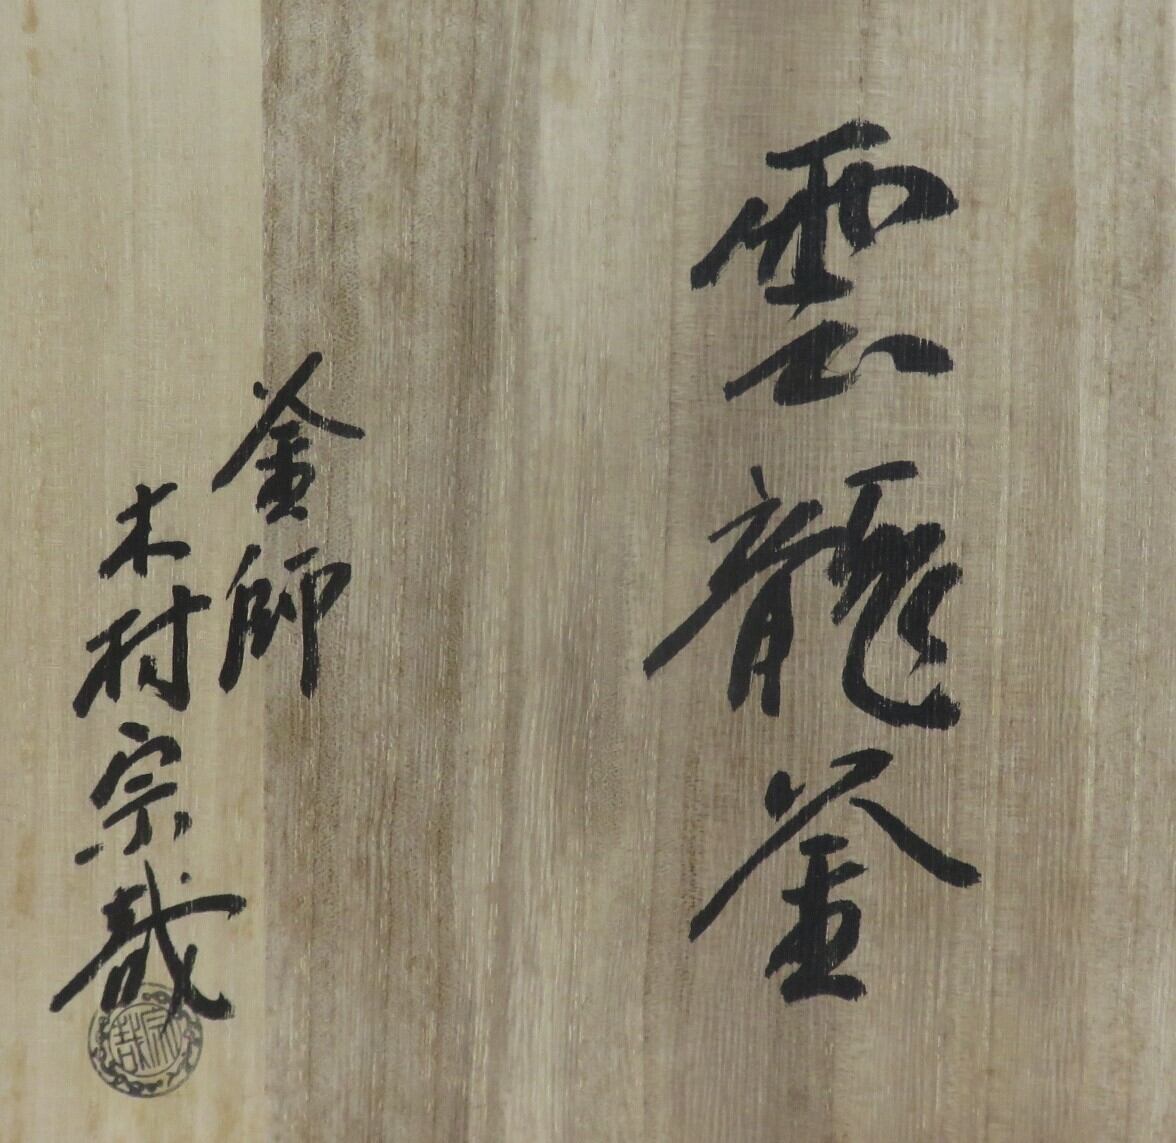 雲龍釜
釜師
木村宗哉
宗哉